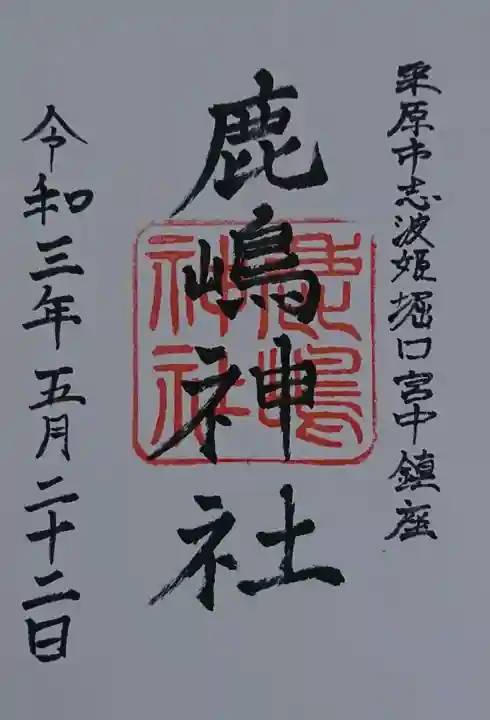 栗原市志波姫堀口宮中鎮座
鹿嶋神社
鹿嶋神社
令和三年五月二十二日